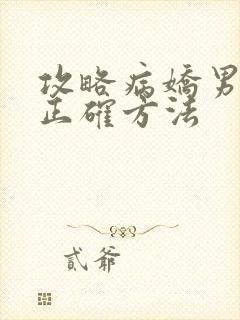 攻略病嬌男
正確方法
貳爺